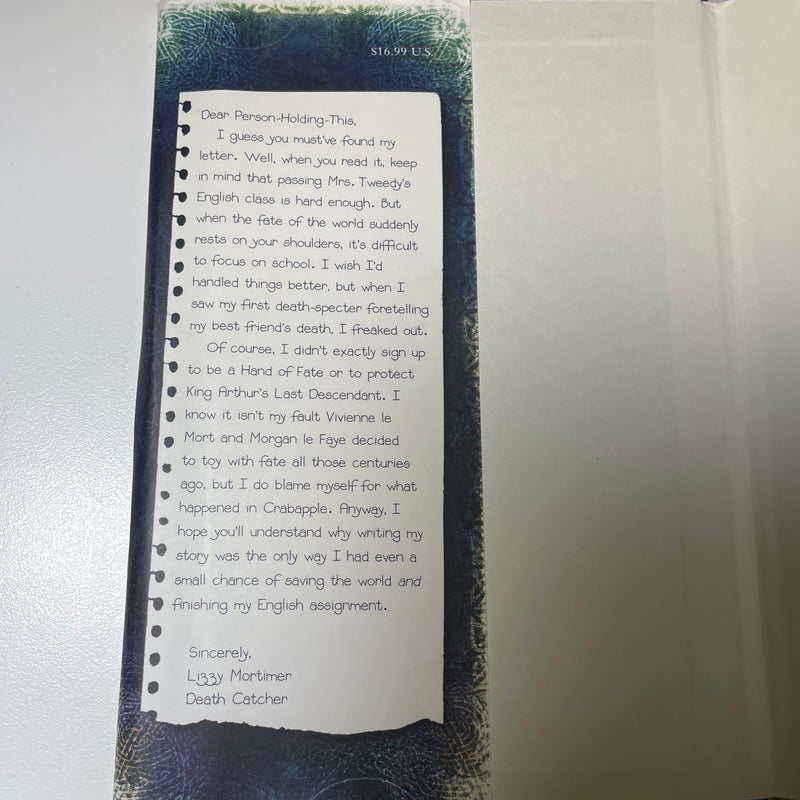 $16.99 U.S.
Dear Person-Holding-This,
I guess you must've found my
letter. Well, when you read it, keep
in mind that passing Mrs. Tweedy's
English class is hard enough. But
when the fate of the world suddenly
rests on your shoulders, it's difficult
to focus on school. I wish I'd
handled things better, but when I
saw my first death-specter foretelling
my best friend's death, I freaked out.
Of course, I didn't exactly sign up
to be a Hand of Fate or to protect
King Arthur's Last Descendant. I
know it isn't my fault Vivienne le
Mort and Morgan le Faye decided
to toy with fate all those centuries
ago, but I do blame myself for what
happened in Crabapple. Anyway, I
hope you'll understand why writing my
story was the only way I had even a
small chance of saving the world and
finishing my English assignment.
Sincerely,
Lizzy Mortimer
Death Catcher